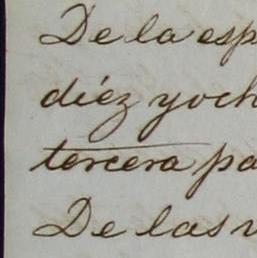 De la esp
diéz y och
tercera pa
De las v